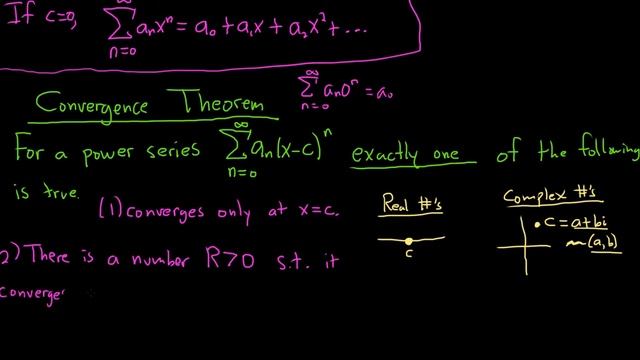 If c=0, ∞∑n=0 aₙxⁿ = a₀ + a₁x + a₂x² + ...
∞∑n=0 aₙ0ⁿ = a₀
Convergence Theorem
For a power series ∞∑n=0 aₙ(x-c)ⁿ exactly one of the following
is true.
(1) converges only at x=c.
Real #'s
c
Complex #'s
c = a+bi
(a,b)
2) There is a number R>0 s.t. it
converge